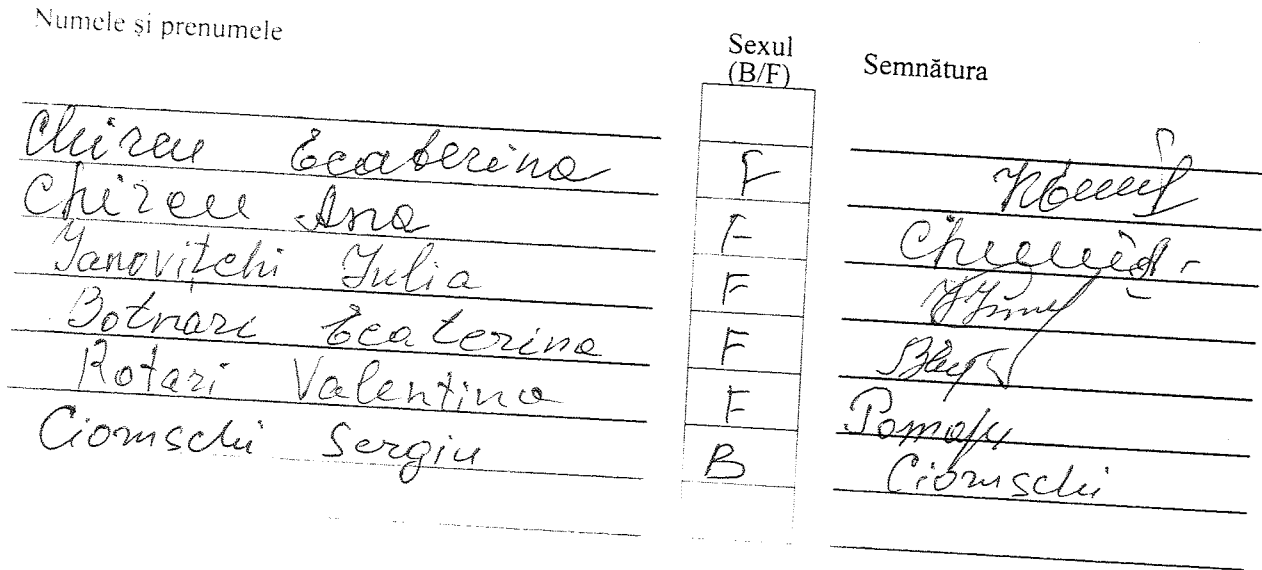 Numele și prenumele Sexul (B/F) Semnătura
Chircu Ecaterina F
Chircu Ana F
Ianovițchi Iulia F
Botnari Ecaterina F
Rotari Valentina F
Ciomschi Sergiu B Ciomschi